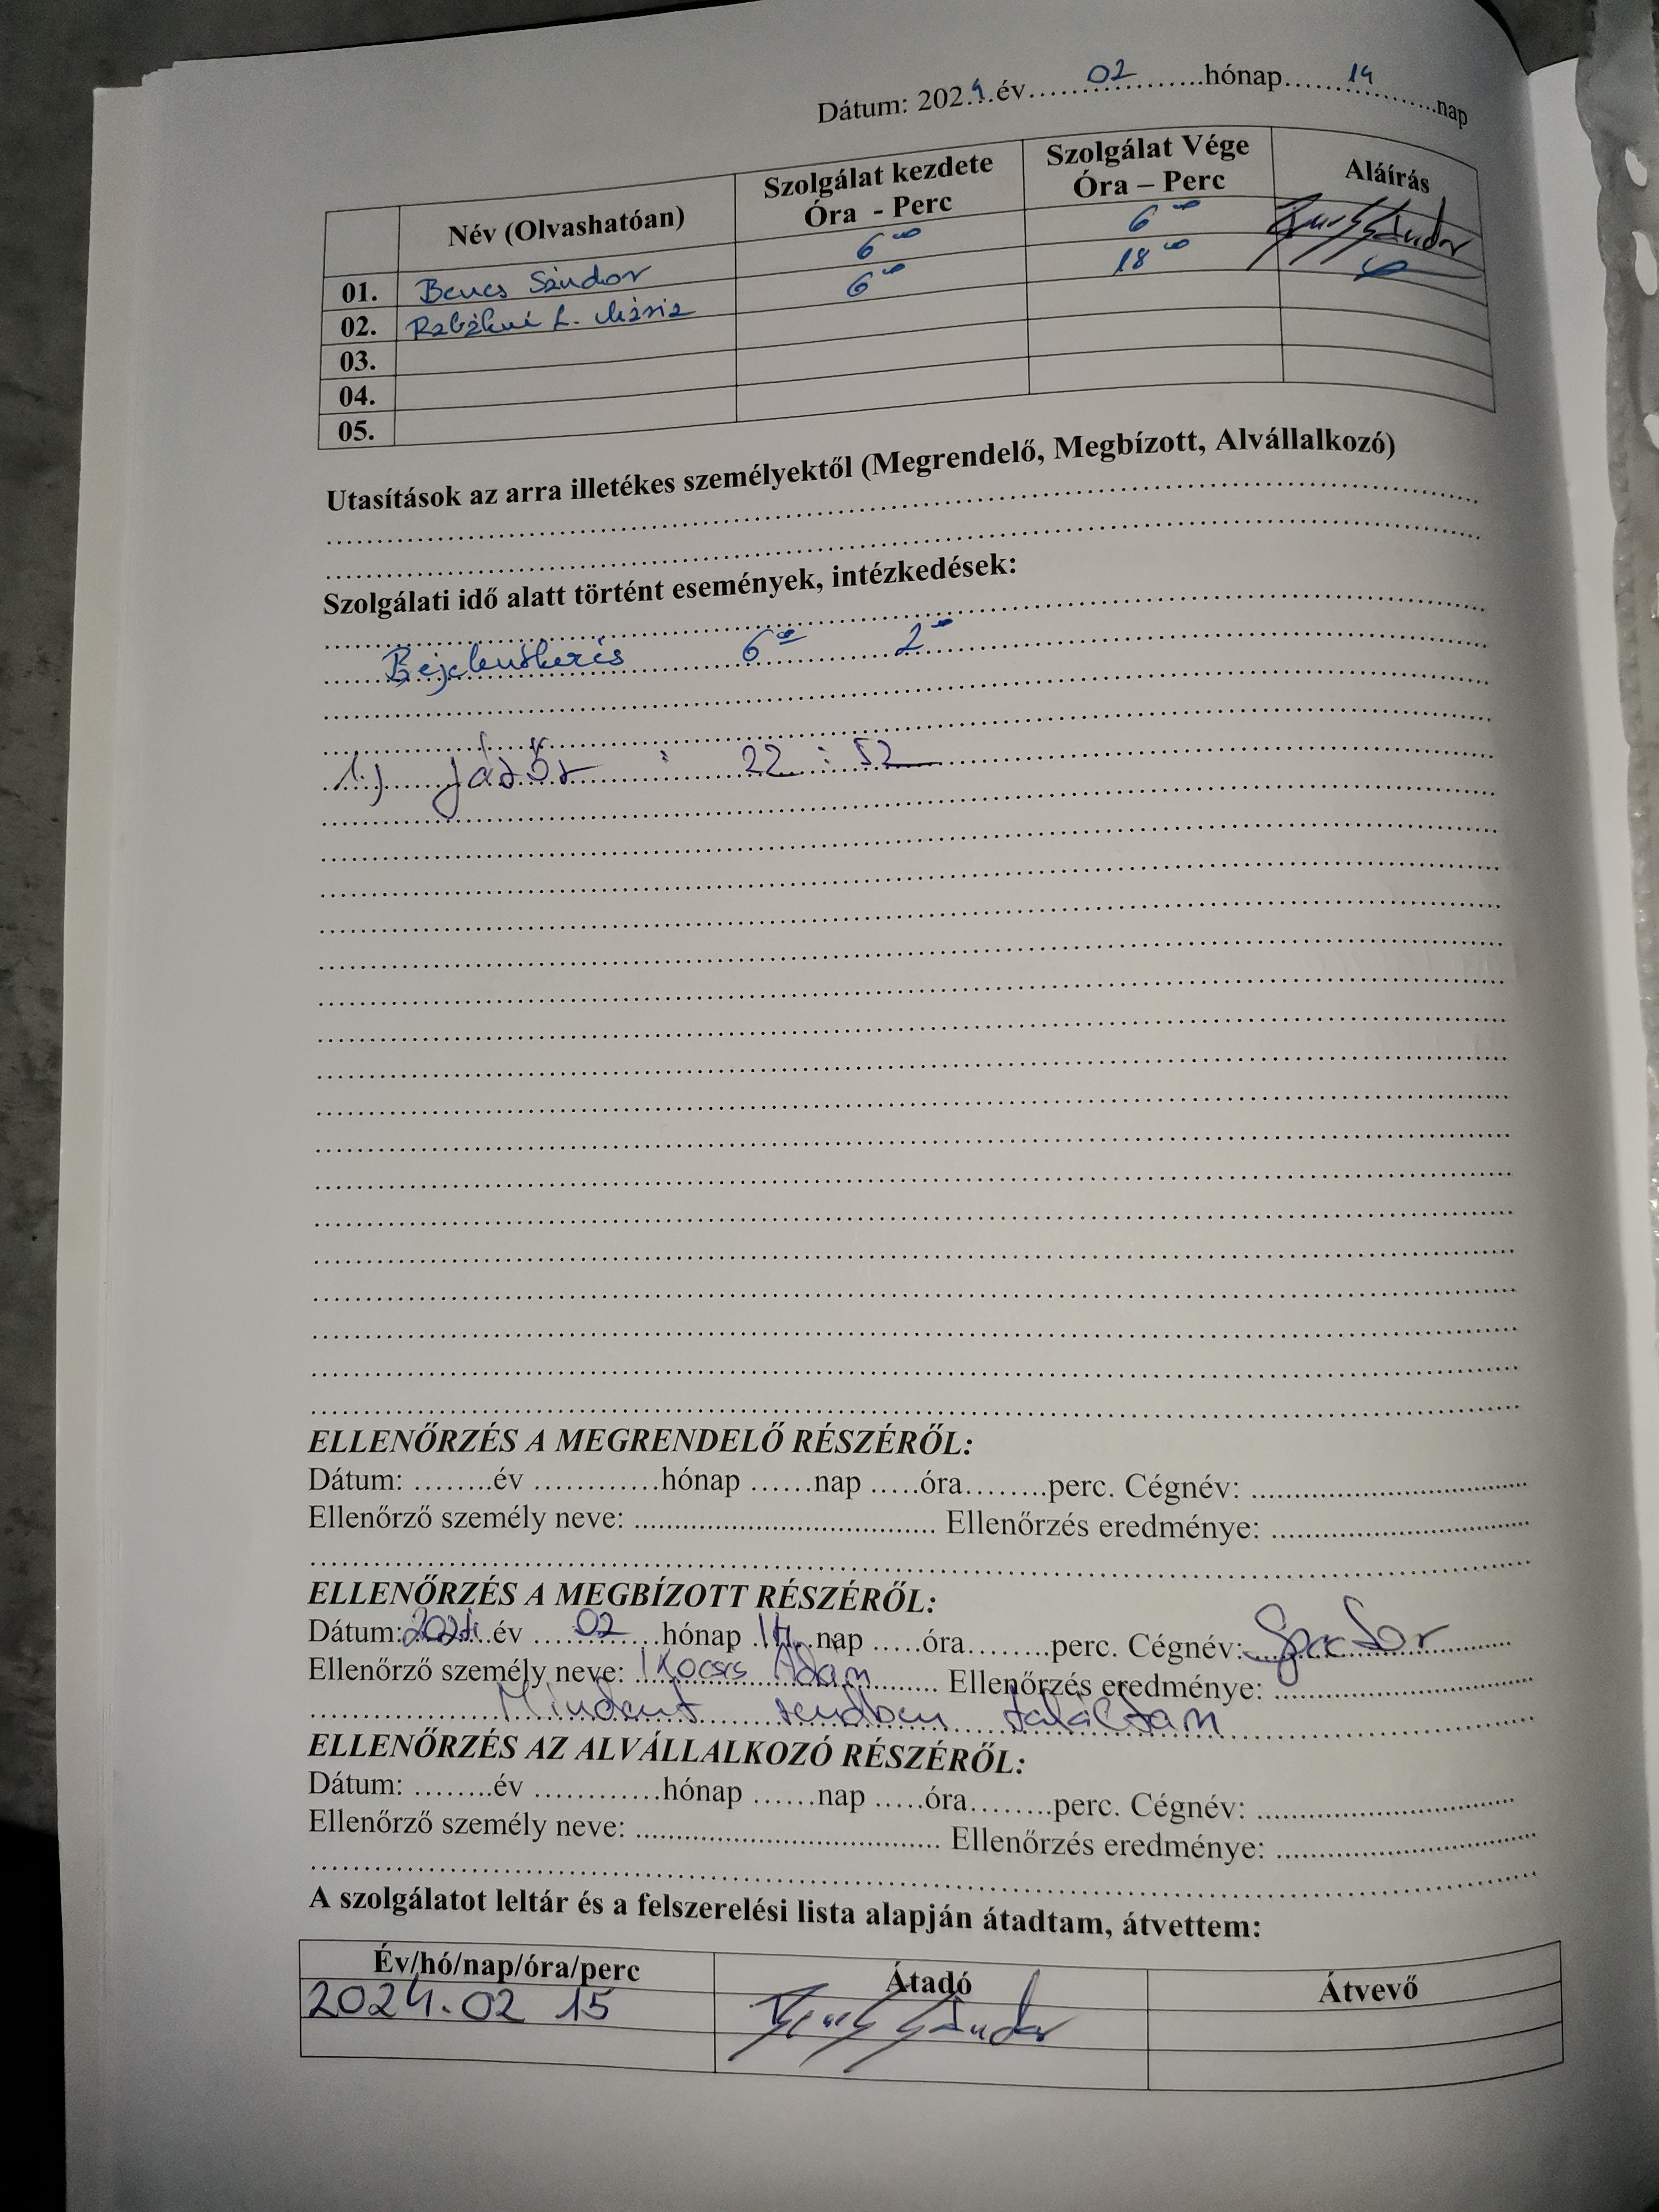 Dátum: 2024.év 02 hónap 14 nap
Név (Olvashatóan) Szolgálat kezdete Óra - Perc Szolgálat Vége Óra – Perc Aláírás
01. Bencs Sándor 6 00 6 00
02. L. Mária 6 00 18 00
03.
04.
05.
Utasítások az arra illetékes személyektől (Megrendelő, Megbízott, Alvállalkozó)
Szolgálati idő alatt történt események, intézkedések:
Bejelentkezés 6 00 2 00
1.) járőr : 22 : 52
ELLENŐRZÉS A MEGRENDELŐ RÉSZÉRŐL:
Dátum: ........év ............hónap ......nap .....óra........perc. Cégnév: ........................................
Ellenőrző személy neve: ............................................. Ellenőrzés eredménye: ......................................
ELLENŐRZÉS A MEGBÍZOTT RÉSZÉRŐL:
Dátum: 2024 év 02 hónap 14. nap .....óra........perc. Cégnév:
Ellenőrző személy neve: Kocsis Ádám Ellenőrzés eredménye:
Mindent rendben találtam
ELLENŐRZÉS AZ ALVÁLLALKOZÓ RÉSZÉRŐL:
Dátum: ........év ............hónap ......nap .....óra........perc. Cégnév: ......................................
Ellenőrző személy neve: ............................................. Ellenőrzés eredménye: ......................................
A szolgálatot leltár és a felszerelési lista alapján átadtam, átvettem:
Év/hó/nap/óra/perc Átadó Átvevő
2024.02 15